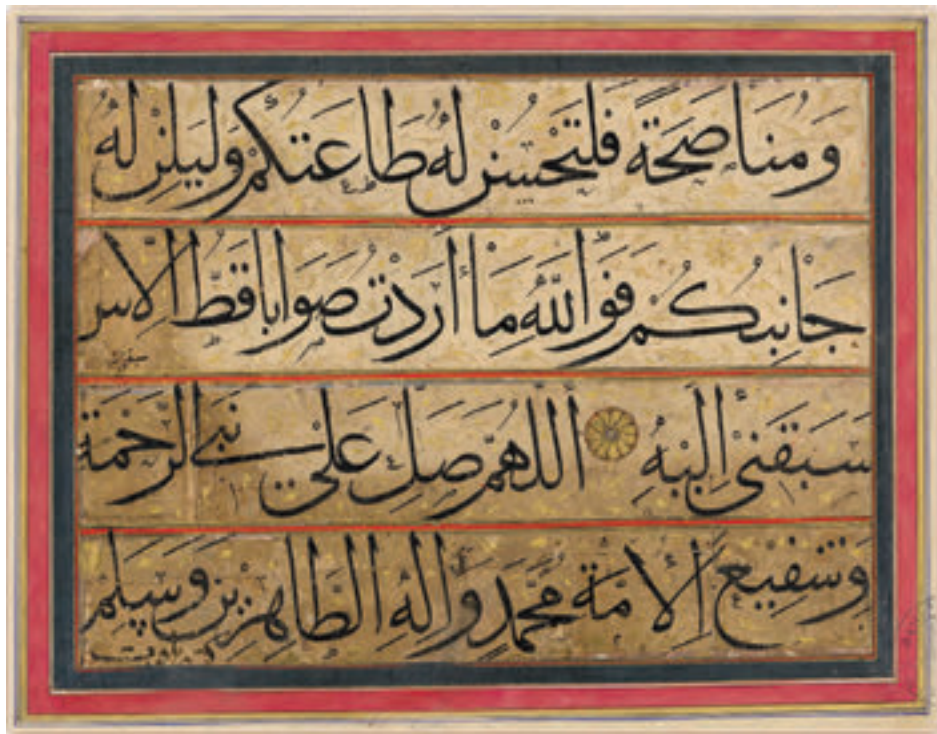 وَمُنَاصَحَةٍ فَلْتَحْسُنْ لَهُ طَاعَتُكُمْ وَلْيَلِنْ لَهُ
جَانِبُكُمْ فَوَاللَّهِ مَا أَرَدْتُ صَوَابًا قَطُّ إِلَّا
سَبَقَنِي إِلَيْهِ اَللَّهُمَّ صَلِّ عَلَى نَبِيِّ الرَّحْمَةِ
وَشَفِيعِ الْأُمَّةِ مُحَمَّدٍ وَآلِهِ الطَّاهِرِينَ وَسَلِّمْ